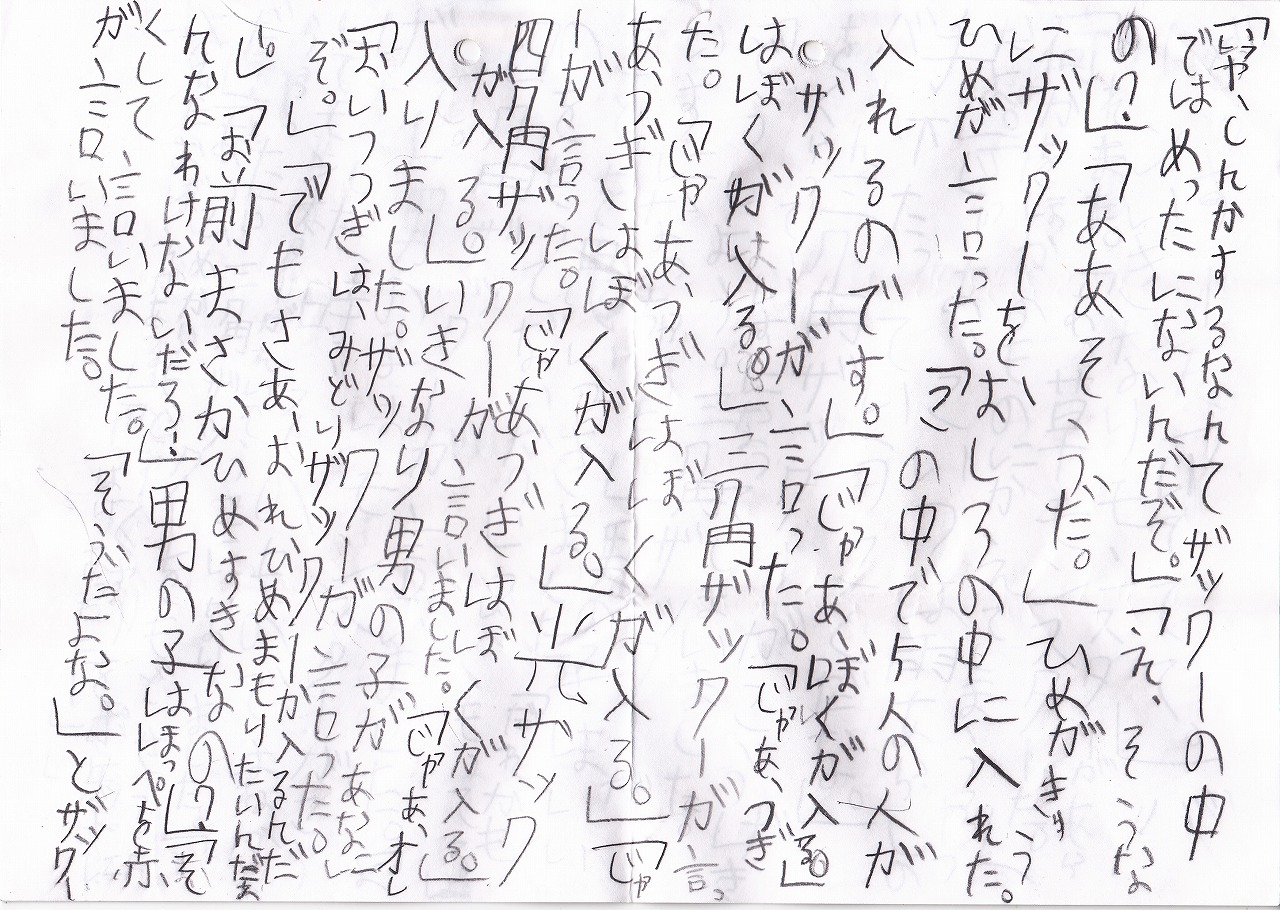 「いや、しんかするなんてザックーの中
ではめったにないんだぞ。」「え、そうな
の?」「ああそうだ。」ひめがきゅう
にザックーをはしろの中に入れた。
ひめが言った。「この中で5人の人が
入れるのです。」「じゃあ、ぼくが入る。」
ザックーが言った。「じゃあ、つぎ
はぼくが入る。」三角ザックーが言っ
た。「じゃあ、つぎはぼくが入る。」「じゃ
あ、つぎはぼくが入る。」光ザックー
が言った。「じゃあ、つぎはぼくが入る。」
四角ザックーが言いました。「じゃあ、オレ
が入る。」いきなり男の子があなに
入りました。ザックーが言った。
「おいつぎは、みどりザックーが入るんだ
ぞ。」「でもさあ、おれひめまもりたいんだよ
。」「お前まさかひめすきなの?」「そ
んなわけないだろ!」男の子はほっぺを赤
くして言いました。「そうだよな。」とザックー
が言いました。